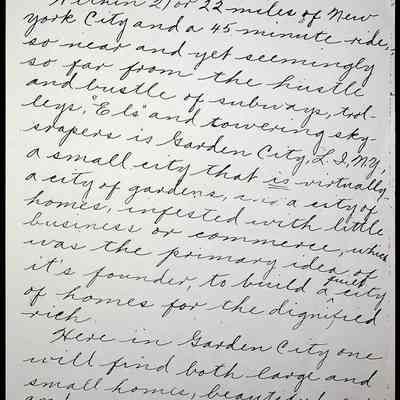 Within 21 or 22 miles of New
York City and a 45 minute ride,
so near and yet seemingly
so far from the hustle
and bustle of subways, trol-
leys, "Els" and towering sky-
srapers is Garden City, L.I, N.Y,
a small city that is virtually
a city of gardens, a city of
homes, infested with little
business or commerce, which
was the primary idea of
it's founder, to build a quiet city
of homes for the dignified
rich.
Here in Garden City one
will find both large and
small homes,